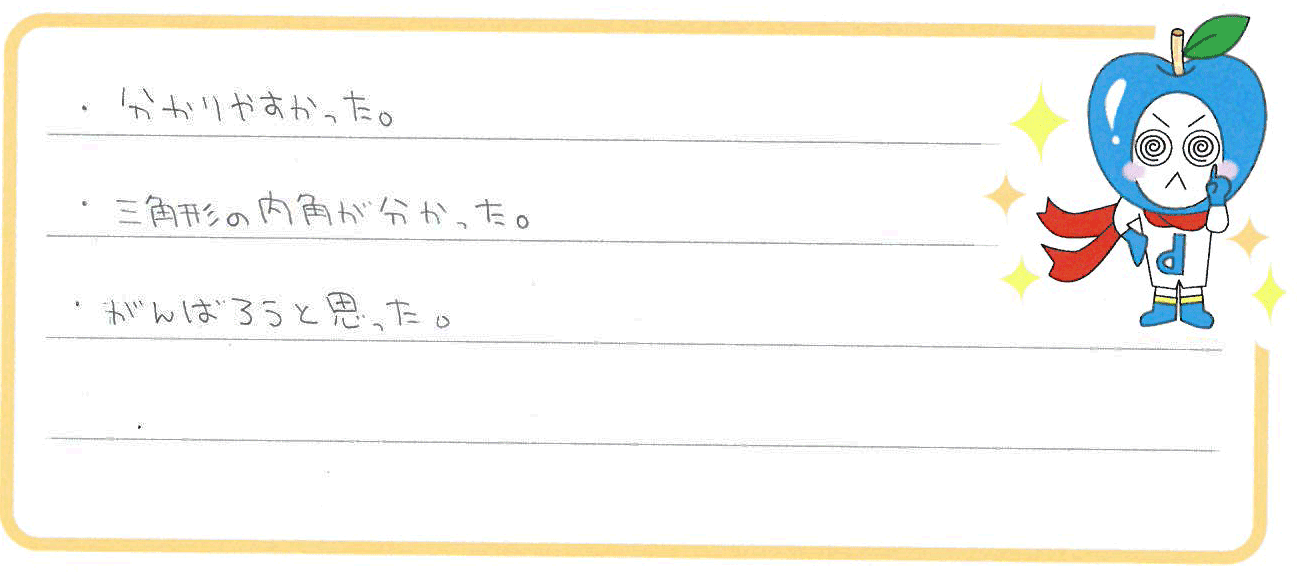 ・分かりやすかった。
・三角形の内角が分かった。
・がんばろうと思った。
d